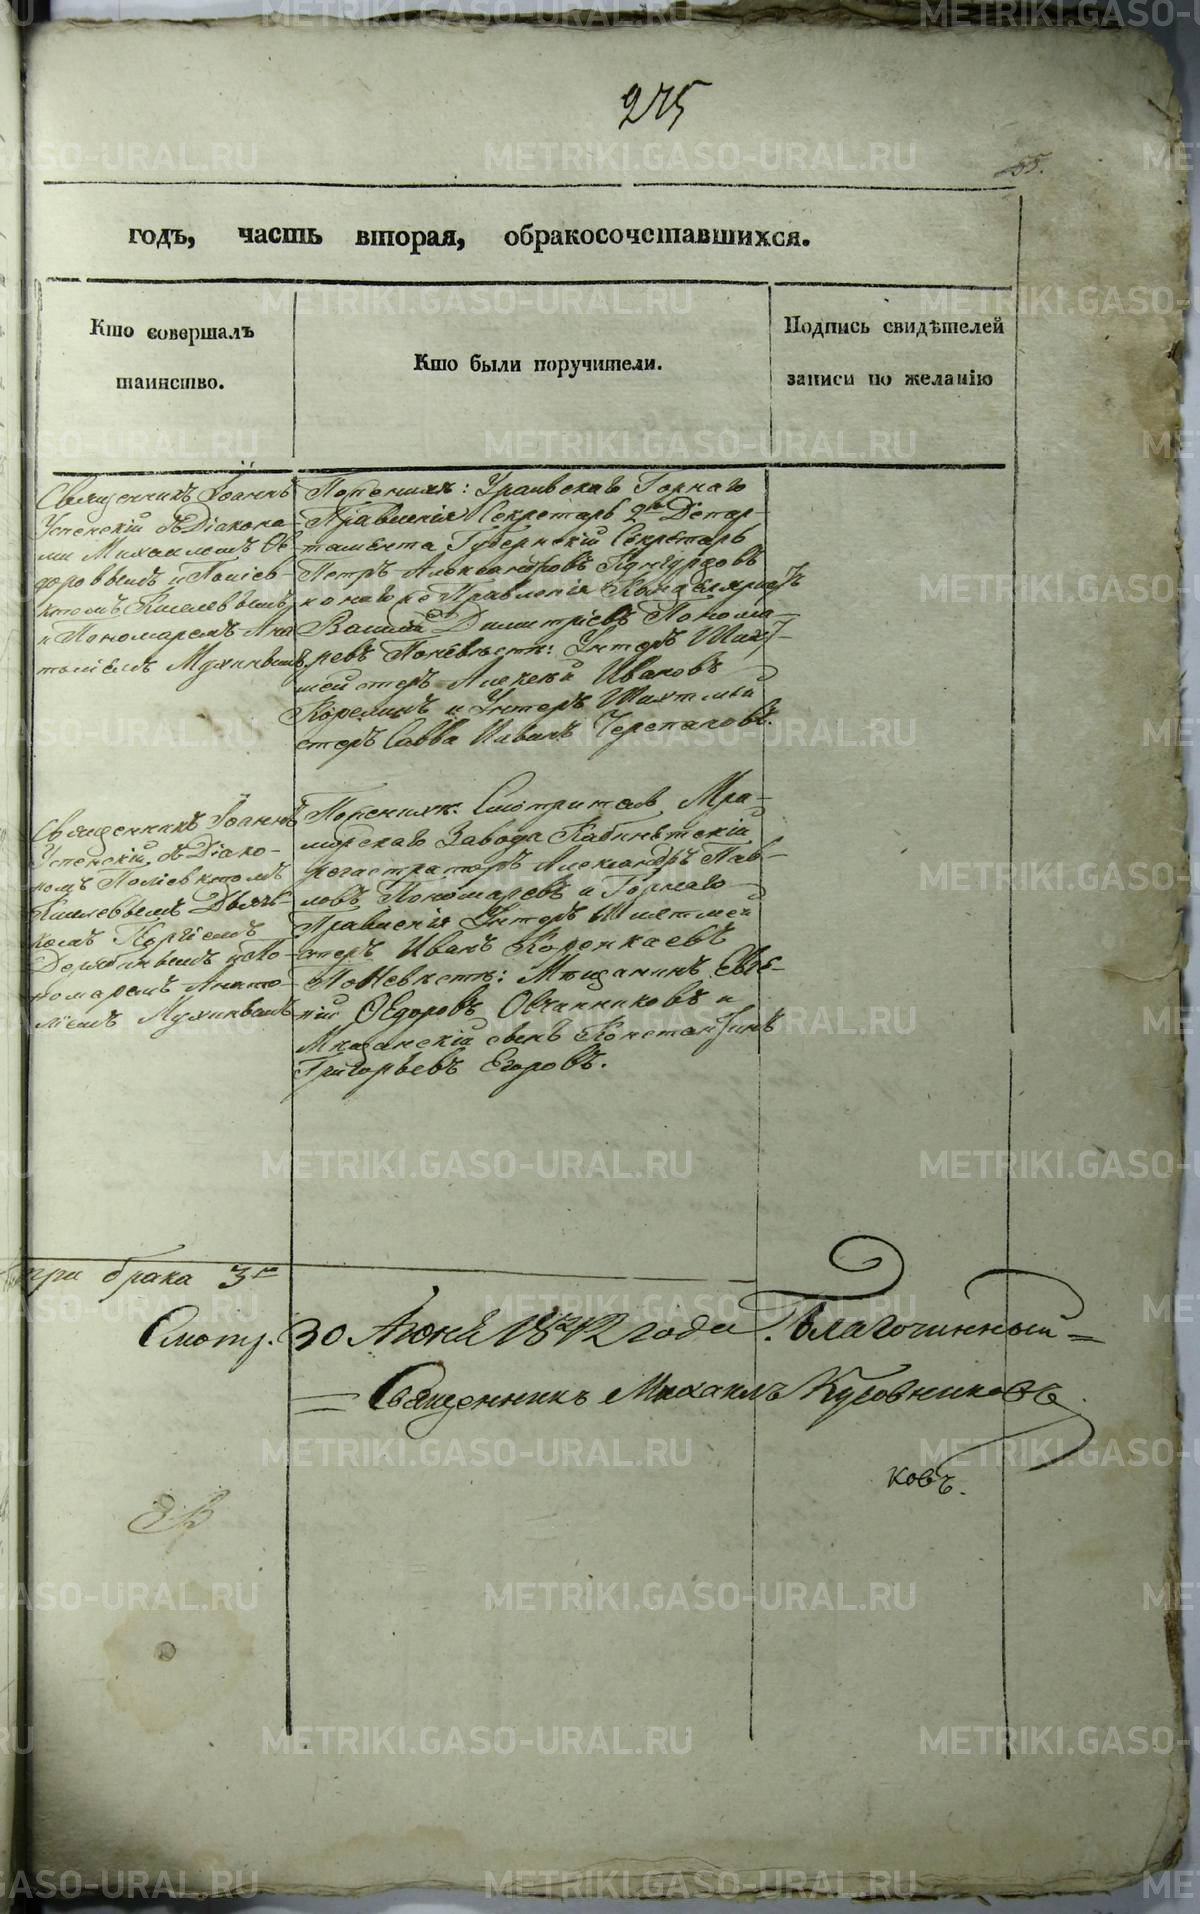 275
55.
годъ, часть вторая, обракосочетавшихся.
Кто совершалъ
таинство.
Кто были поручители.
Подпись свидѣтелей
записи по желанію
Священникъ Іоаннъ
Успенскій съ Діакона-
ми Михаиломъ Ѳе-
доровымъ и Поліев-
ктомъ Киселевымъ
и Пономаремъ Ана
толіемъ Мухинымъ
По женихѣ: Уральскаго Горнаго
Правленія Секретарь 2го Депар-
тамента Губернскій Секретарь
Петръ Александровъ
Правленія Канцеляристъ
Василій Димитріевъ Понома-
ревъ По невѣстѣ: Унтеръ Шихт-
мейстеръ Алексѣй Ивановъ
Корелинъ и Унтеръ Шихтмей
стеръ Савва Ивановъ Черепановъ.
Священникъ Іоаннъ
Успенскій съ Діако-
номъ Поліевктомъ
Киселевымъ Дьяч-
комъ
Дерябинымъ и По-
номаремъ Анато-
ліемъ Мухинымъ
По женихѣ: Смотритель Мра-
морскаго Завода Кабинетскій
Регистраторъ Александръ Пав-
ловъ Пономаревъ и Горнаго
Правленія Унтеръ Шихтмей
стеръ Иванъ
По невѣстѣ: Мѣщанинъ Евге-
ній Ѳедоровъ Овчинниковъ и
Мѣщанскій сынъ Константинъ
Григорьевъ Егоровъ.
три брака 3.
Смотр. 30 Іюня 1842 года. Благочинный
Священникъ Михаилъ
ковъ.
METRIKI.GASO-URAL.RU